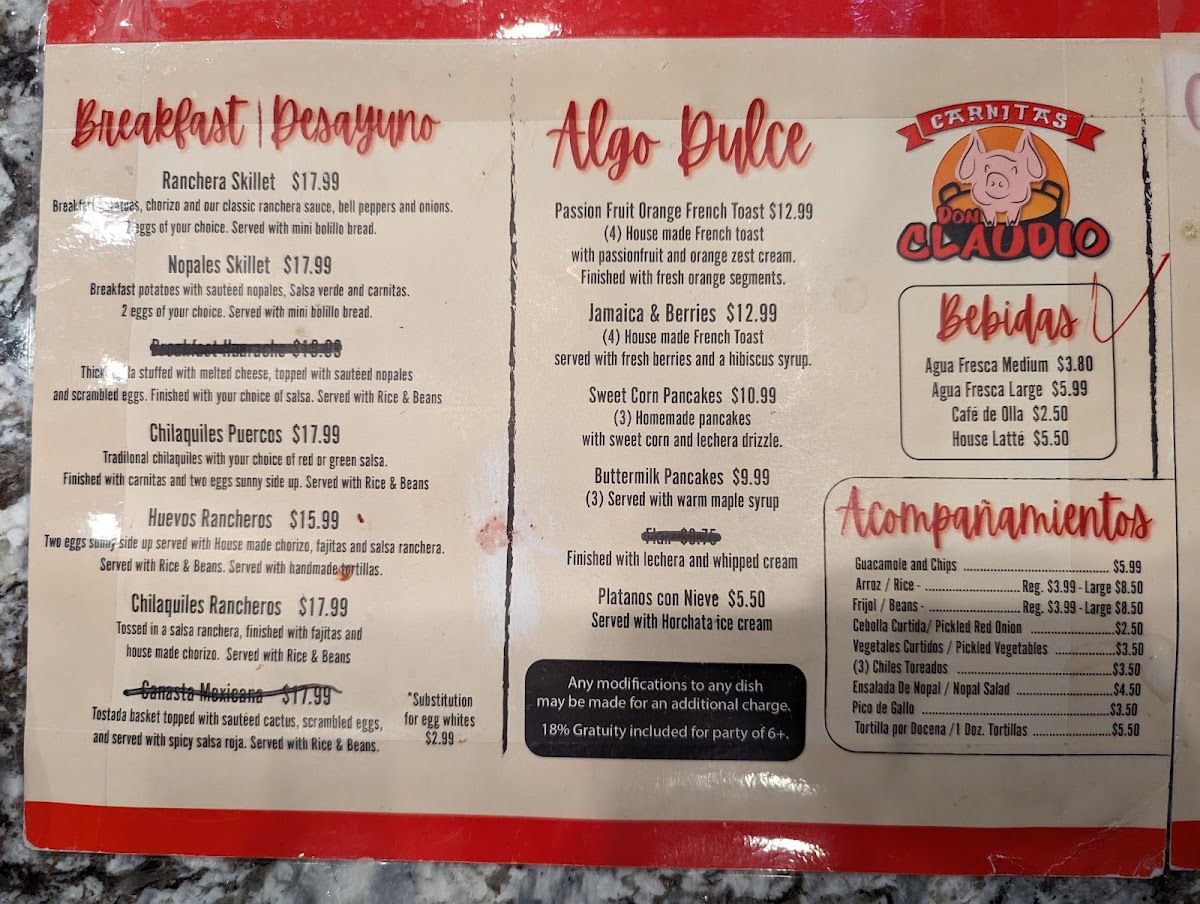 Breakfast | Desayuno
Ranchera Skillet $17.99
Breakfast potatoes, chorizo and our classic ranchera sauce, bell peppers and onions.
2 eggs of your choice. Served with mini bolillo bread.
Nopales Skillet $17.99
Breakfast potatoes with sautéed nopales, Salsa verde and carnitas.
2 eggs of your choice. Served with mini bolillo bread.
Breakfast Huarache
Thick stuffed with melted cheese, topped with sautéed nopales
and scrambled eggs. Finished with your choice of salsa. Served with Rice & Beans
Chilaquiles Puercos $17.99
Traditional chilaquiles with your choice of red or green salsa.
Finished with carnitas and two eggs sunny side up. Served with Rice & Beans
Huevos Rancheros $15.99
Two eggs sunny side up served with House made chorizo, fajitas and salsa ranchera.
Served with Rice & Beans. Served with handmade tortillas.
Chilaquiles Rancheros $17.99
Tossed in a salsa ranchera, finished with fajitas and
house made chorizo. Served with Rice & Beans
Canasta Mexicana $17.99
Tostada basket topped with sautéed cactus, scrambled eggs,
and served with spicy salsa roja. Served with Rice & Beans.
*Substitution
for egg whites
$2.99
Algo Dulce
Passion Fruit Orange French Toast $12.99
(4) House made French toast
with passionfruit and orange zest cream.
Finished with fresh orange segments.
Jamaica & Berries $12.99
(4) House made French Toast
served with fresh berries and a hibiscus syrup.
Sweet Corn Pancakes $10.99
(3) Homemade pancakes
with sweet corn and lechera drizzle.
Buttermilk Pancakes $9.99
(3) Served with warm maple syrup
Flan
Finished with lechera and whipped cream
Platanos con Nieve $5.50
Served with Horchata ice cream
Any modifications to any dish
may be made for an additional charge.
18% Gratuity included for party of 6+.
CARNITAS
DON
CLAUDIO
Bebidas
Agua Fresca Medium $3.80
Agua Fresca Large $5.99
Café de Olla $2.50
House Latté $5.50
Acompañamientos
Guacamole and Chips $5.99
Arroz / Rice - Reg. $3.99 - Large $8.50
Frijol / Beans - Reg. $3.99 - Large $8.50
Cebolla Curtida/ Pickled Red Onion $2.50
Vegetales Curtidos / Pickled Vegetables $3.50
(3) Chiles Toreados $3.50
Ensalada De Nopal / Nopal Salad $4.50
Pico de Gallo $3.50
Tortilla por Docena /1 Doz. Tortillas $5.50